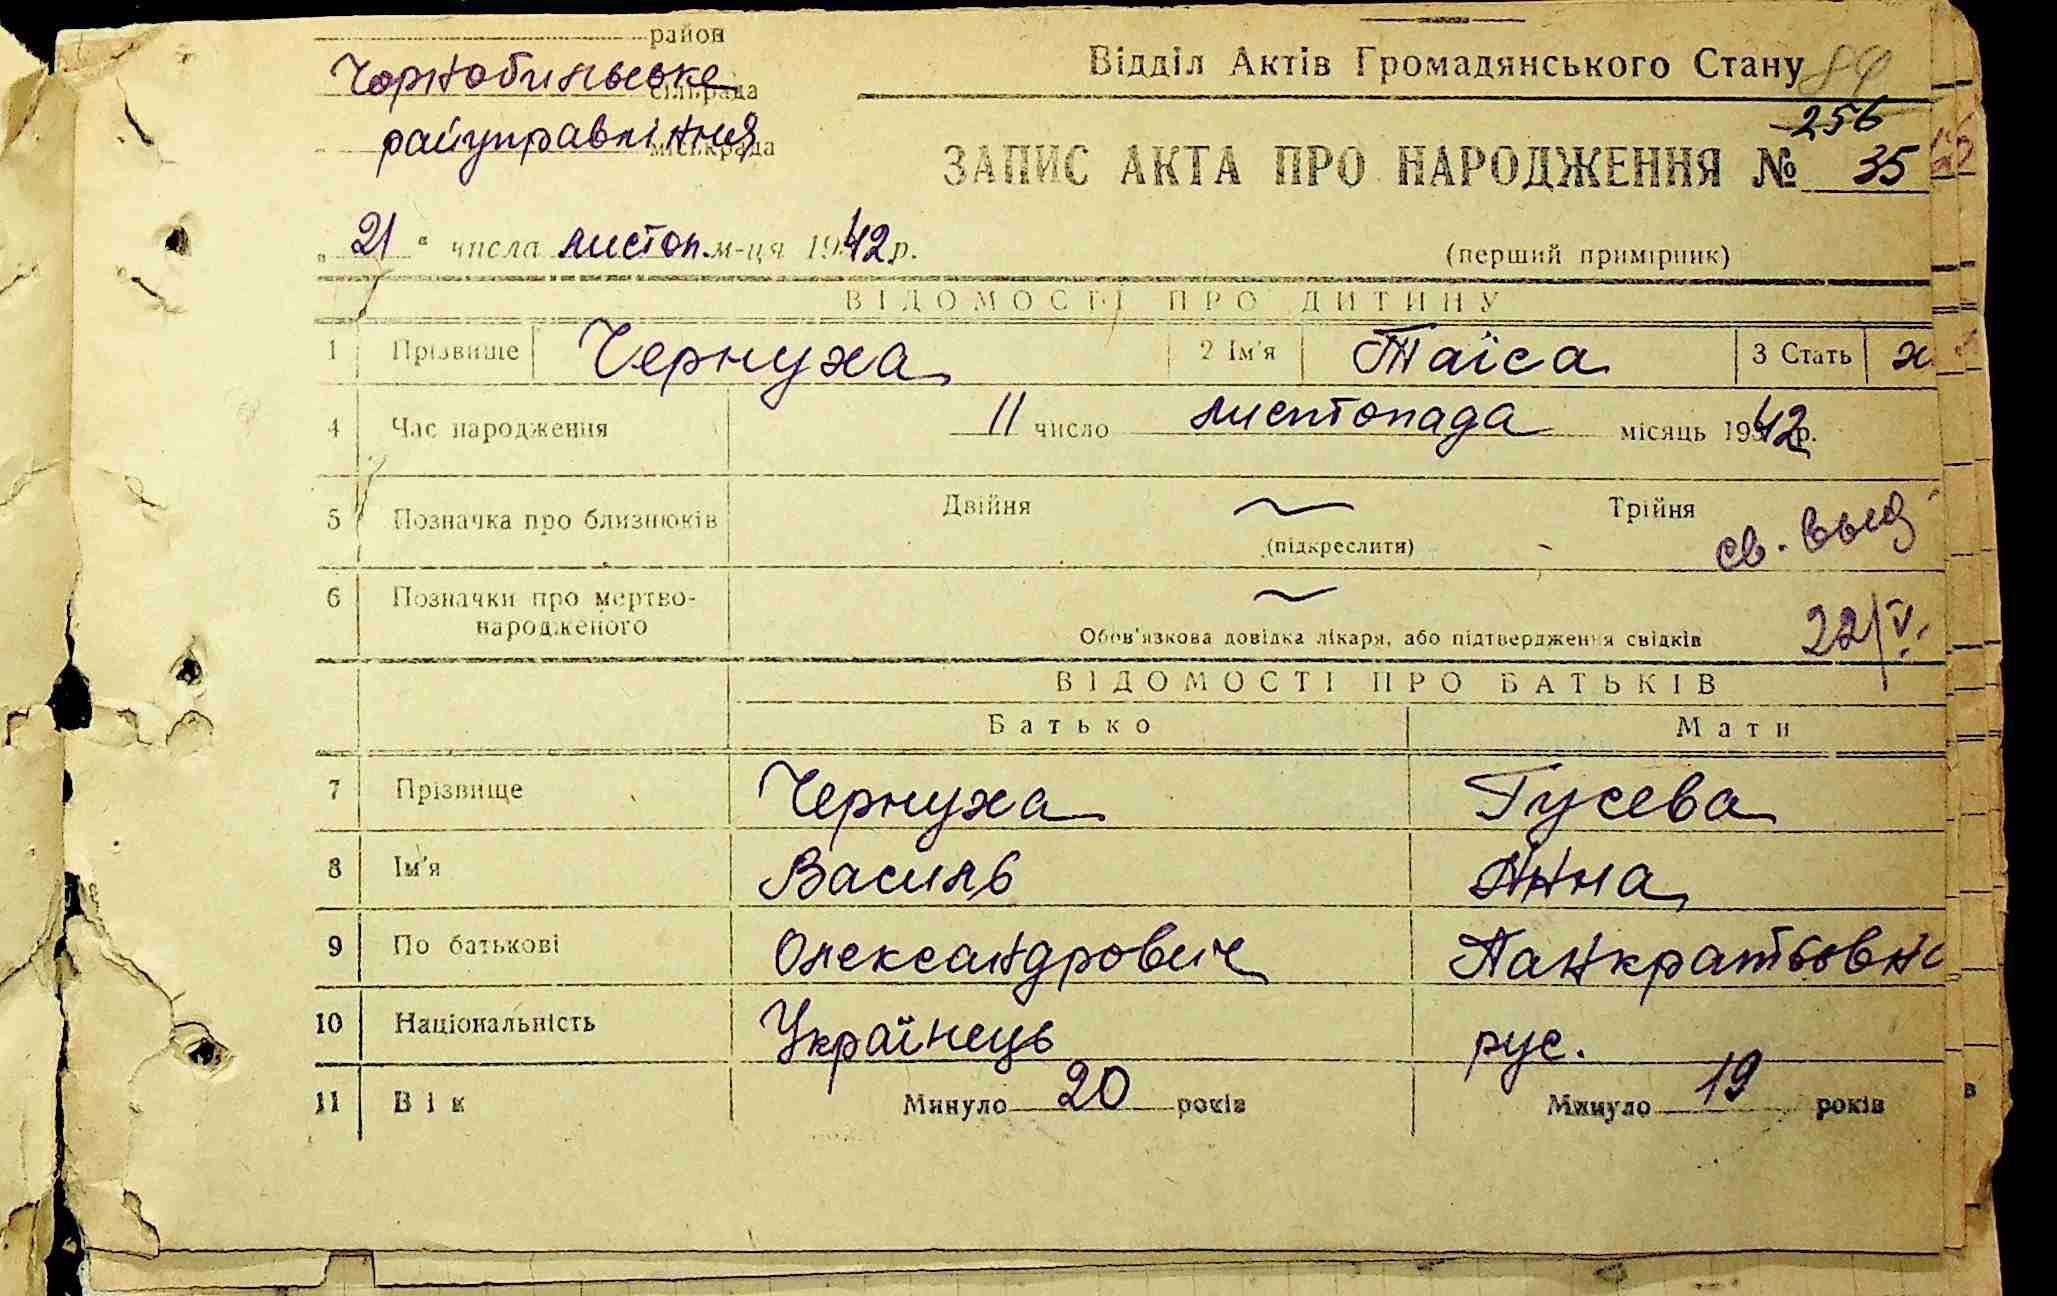 район
Чорнобильське
сільрада
райуправління
міськрада
Відділ Актів Громадянського Стану 84
256
ЗАПИС АКТА ПРО НАРОДЖЕННЯ № 35
„ 21 “ числа листоп. м-ця 1942 р.
(перший примірник)
ВІДОМОСТІ ПРО ДИТИНУ
1 Прізвище Чернуха 2 Ім'я Таїса 3 Стать ж
4 Час народження 11 число листопада місяць 1942 р.
5 Позначка про близнюків Двійня ~ Трійня
(підкреслити)
св. выд
6 Позначки про мертво-
народженого
~
Обов'язкова довідка лікаря, або підтвердження свідків
22/V.
ВІДОМОСТІ ПРО БАТЬКІВ
Батько Мати
7 Прізвище Чернуха Гусева
8 Ім'я Василь Анна
9 По батькові Олександрович Панкратьовна
10 Національність Українець рус.
11 Вік Минуло 20 років Минуло 19 років